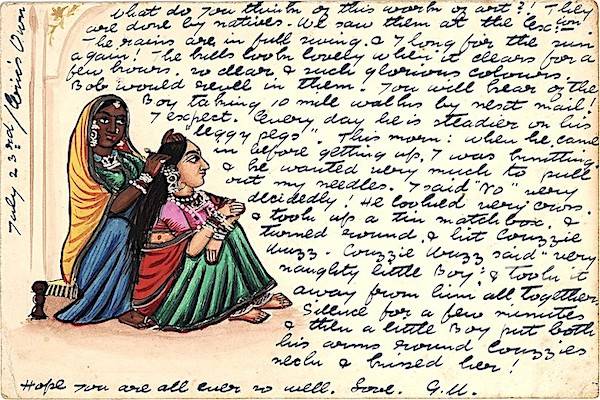 What do you think of this work of art?! They
are done by natives. We saw them at the
The rains are in full swing, & I long for the sun
again! The hills look lovely when it clears for a
few hours, so clear & such glorious colours.
Bob would revell in them. You will hear of the
Boy taking 10 mile walks by next mail!
I expect. Every day he is steadier on his
"leggy pegs". This morn: when he came
in before getting up, I was knitting
& he wanted very much to pull
out my needles. I said "No" very
decidedly! He looked very cross.
& took up a tin match box, &
turned round & hit Couzzie
Wuzz. Couzzie Wuzz said "very
naughty little Boy", & took it
away from him all together
Silence for a few minutes
& then a little Boy put both
his arms round Couzzies
neck & kissed her!
Hope you are all ever so well. Love. G.U.
July 23rd/ Own